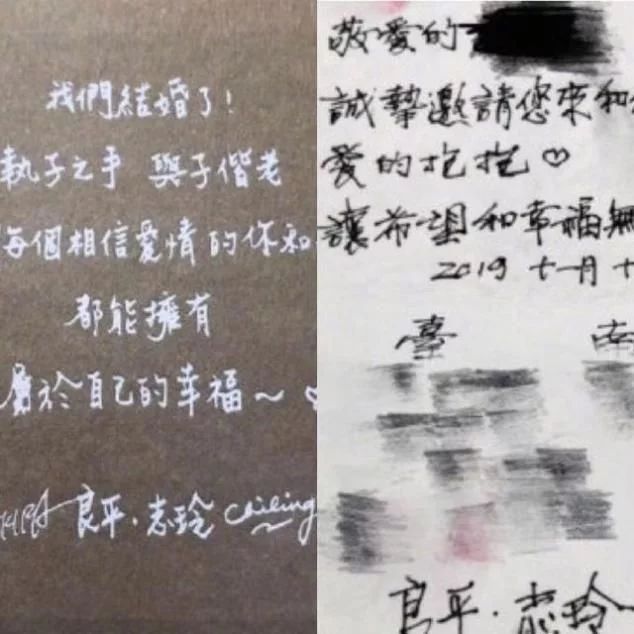 我們結婚了！
執子之手 與子偕老
每個相信愛情的你和
都能擁有
屬於自己的幸福～♡
良平．志玲 Chiling
敬愛的
誠摯邀請您來和
愛的抱抱♡
讓希望和幸福無
2019 十一月十
臺 南
良平．志玲